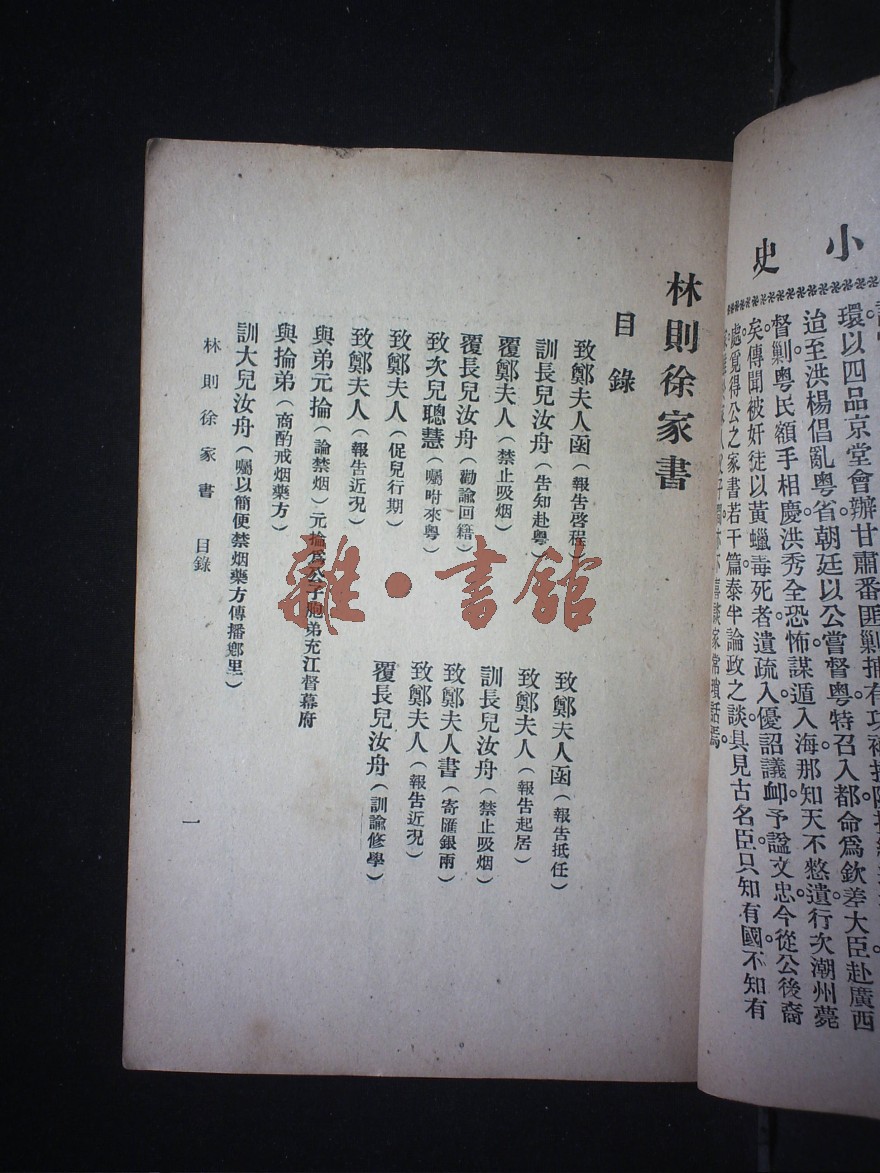 小史
環以四品京堂會辦甘肅番匪剿捕有功
迨至洪楊倡亂粵省朝廷以公嘗督粵特召入都命爲欽差大臣赴廣西
督剿。粵民額手相慶洪秀全恐怖謀遁入海那知天不憗遺行次潮州薨
矣。傳聞被奸徒以黃蠟毒死者遺疏入優詔議卹予諡文忠今從公後裔
處覓得公之家書若干篇泰半論政之談具見古名臣只知有國不知有
家常瑣話焉。
林則徐家書
目錄
致鄭夫人函（報告啓程）
致鄭夫人函（報告抵任）
訓長兒汝舟（告知赴粵）
致鄭夫人（報告起居）
覆鄭夫人（禁止吸烟）
訓長兒汝舟（禁止吸烟）
覆長兒汝舟（勸諭回籍）
致鄭夫人書（寄匯銀兩）
致次兒聰慧（囑咐來粵）
致鄭夫人（報告近況）
致鄭夫人（促兒行期）
覆長兒汝舟（訓諭修學）
致鄭夫人（報告近況）
與弟元掄（論禁烟）元掄爲公子胞弟充江督幕府
與掄弟（商酌戒烟藥方）
訓大兒汝舟（囑以簡便禁烟藥方傳播鄉里）
林則徐家書 目錄
一
雜·書館